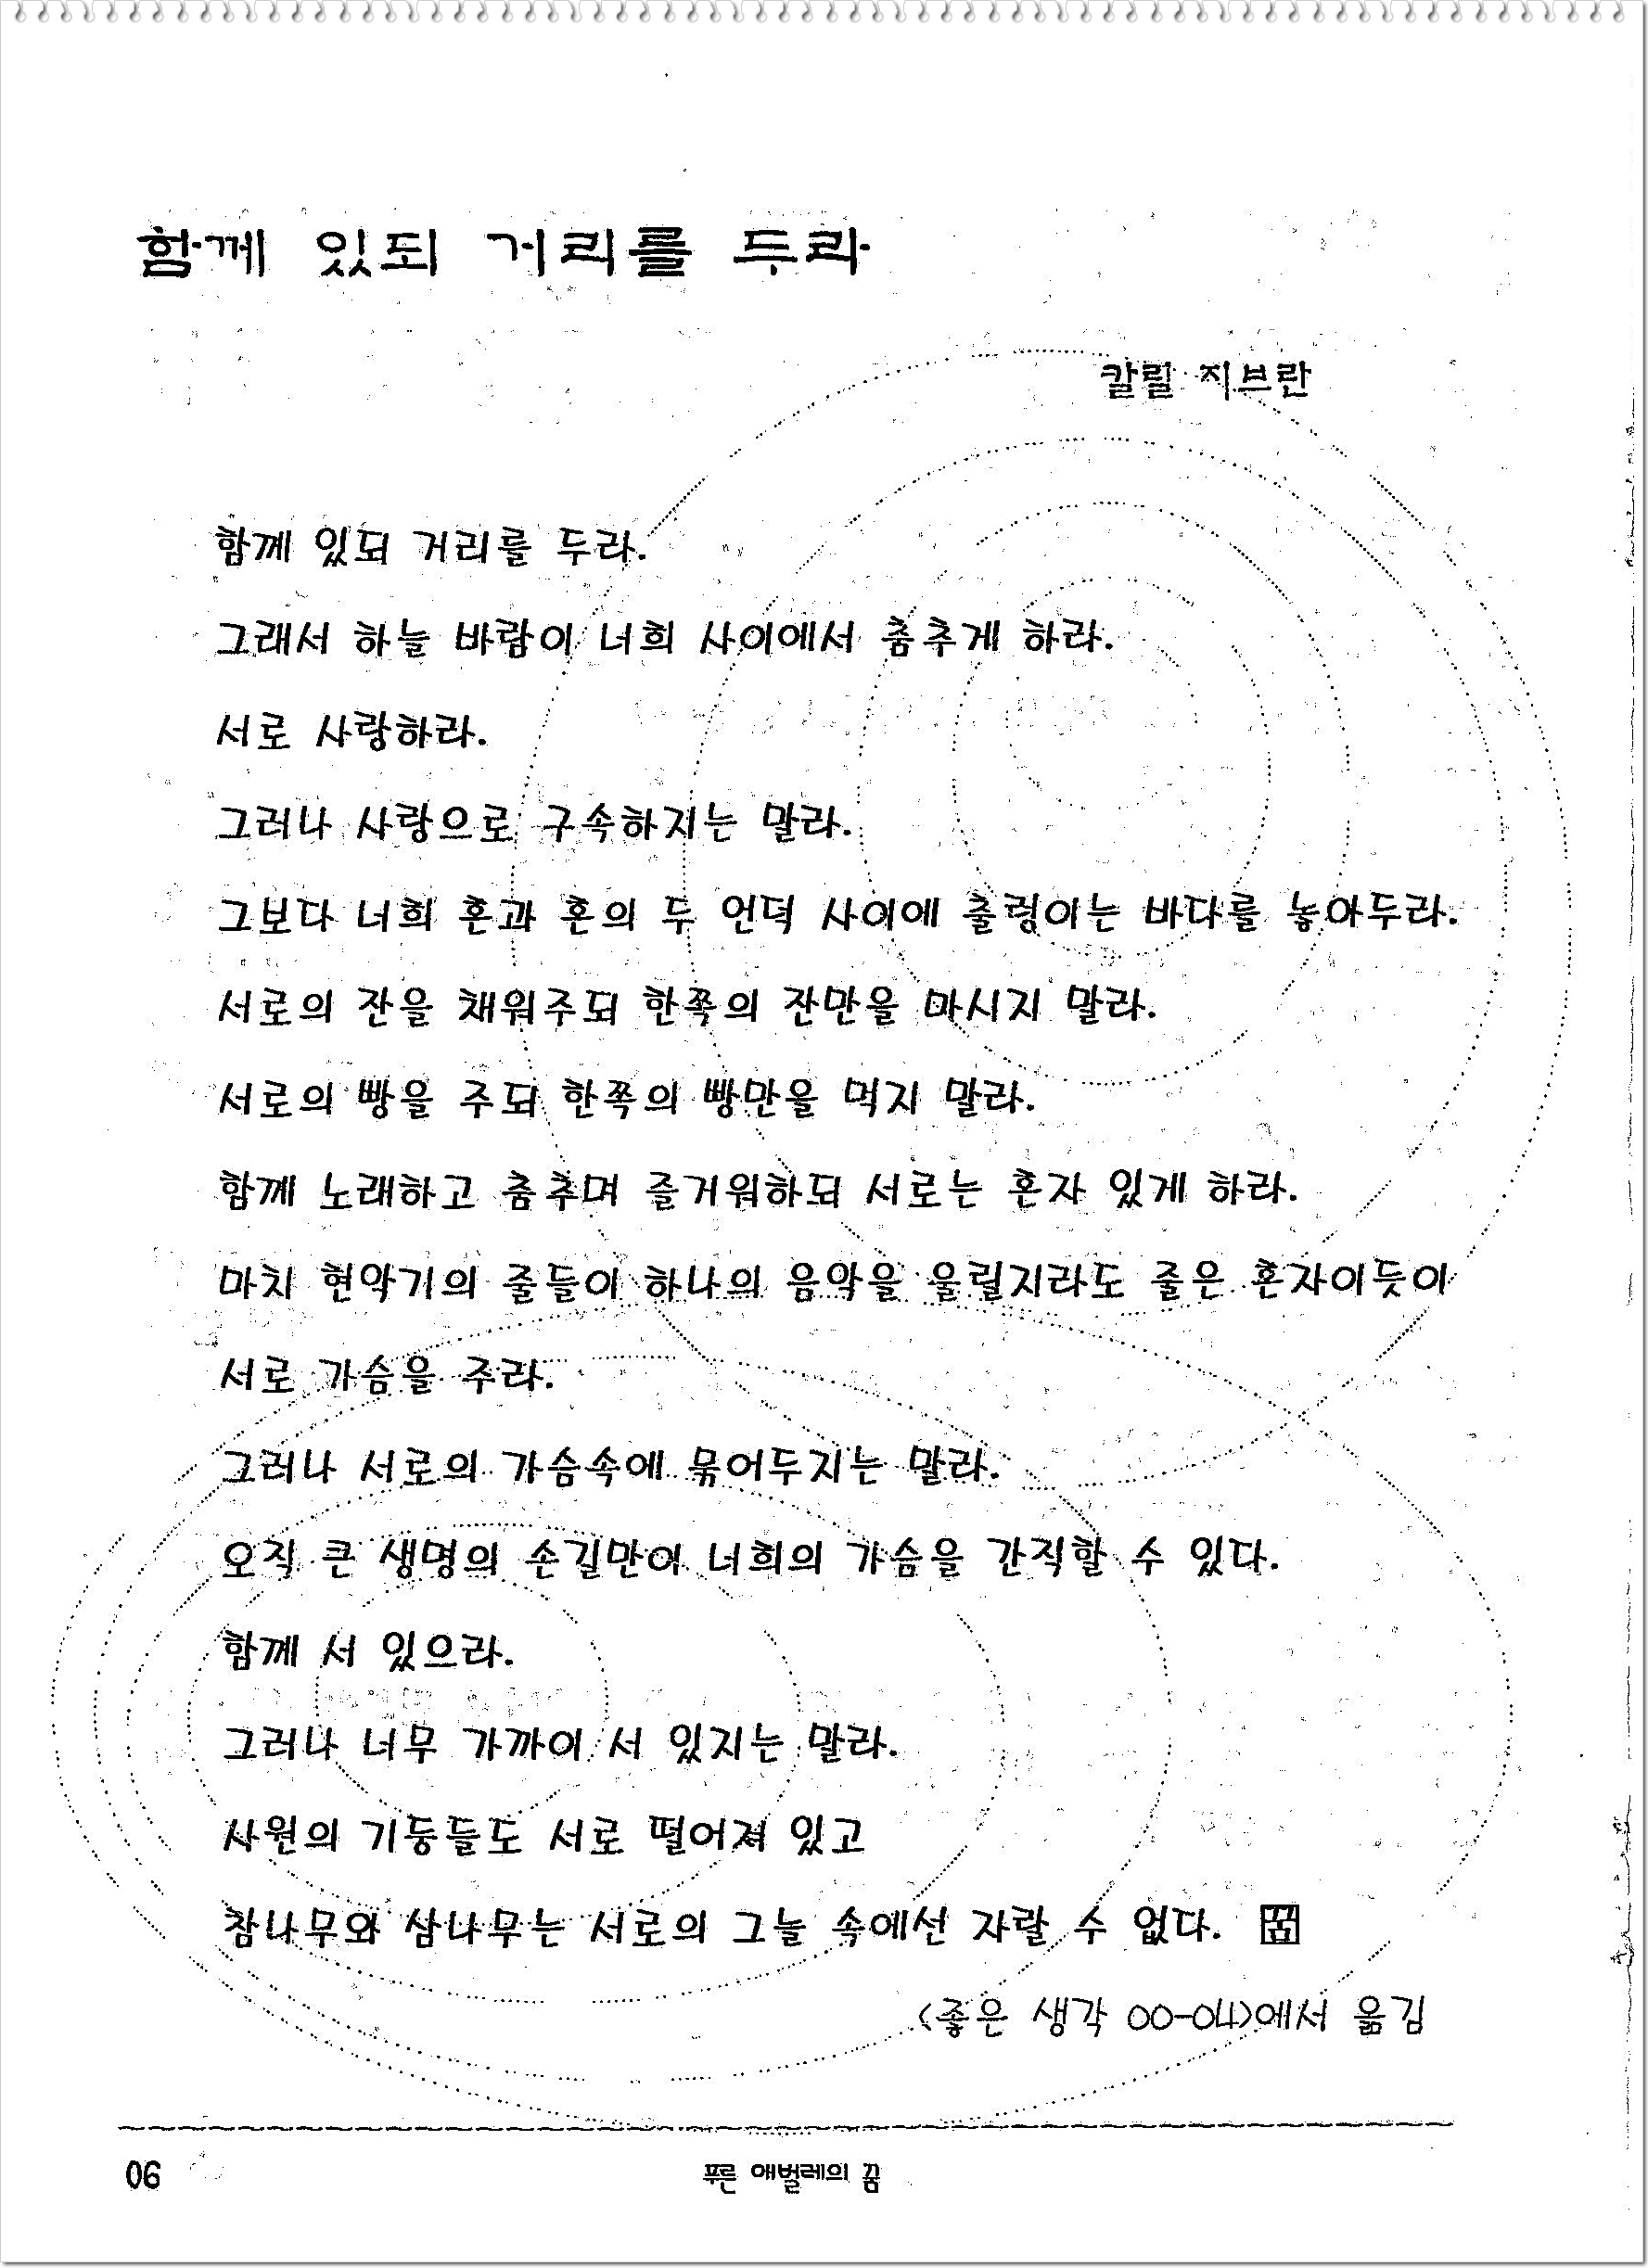 함께 있되 거리를 두라
칼릴 지브란
함께 있되 거리를 두라.
그래서 하늘 바람이 너희 사이에서 춤추게 하라.
서로 사랑하라.
그러나 사랑으로 구속하지는 말라.
그보다 너희 혼과 혼의 두 언덕 사이에 출렁이는 바다를 놓아두라.
서로의 잔을 채워주되 한쪽의 잔만을 마시지 말라.
서로의 빵을 주되 한쪽의 빵만을 먹지 말라.
함께 노래하고 춤추며 즐거워하되 서로는 혼자 있게 하라.
마치 현악기의 줄들이 하나의 음악을 울릴지라도 줄은 혼자이듯이
서로 가슴을 주라.
그러나 서로의 가슴속에 묶어두지는 말라.
오직 큰 생명의 손길만이 너희의 가슴을 간직할 수 있다.
함께 서 있으라.
그러나 너무 가까이 서 있지는 말라.
사원의 기둥들도 서로 떨어져 있고
참나무와 삼나무는 서로의 그늘 속에선 자랄 수 없다. 꿈
<좋은 생각 00-04>에서 옮김
06 푸른 애벌레의 꿈